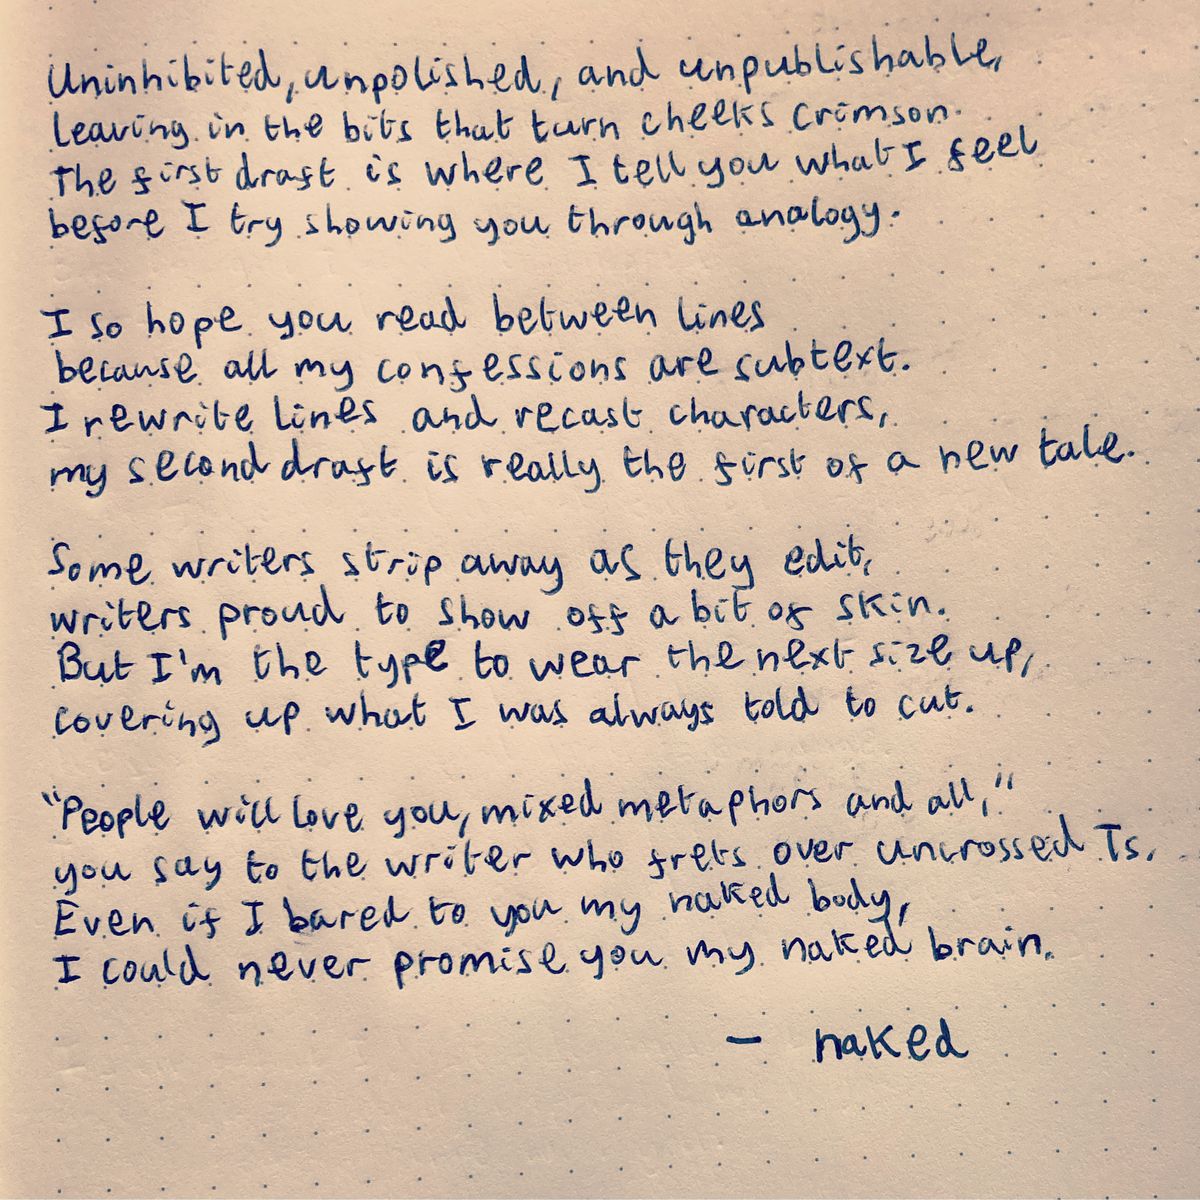 Uninhibited, unpolished, and unpublishable,
leaving in the bits that turn cheeks crimson.
The first draft is where I tell you what I feel
before I try showing you through analogy.
I so hope you read between lines
because all my confessions are subtext.
I rewrite lines and recast characters,
my second draft is really the first of a new tale.
Some writers strip away as they edit,
writers proud to show off a bit of skin.
But I'm the type to wear the next size up,
covering up what I was always told to cut.
"People will love you, mixed metaphors and all,"
you say to the writer who frets over uncrossed Ts.
Even if I bared to you my naked body,
I could never promise you my naked brain.
— naked